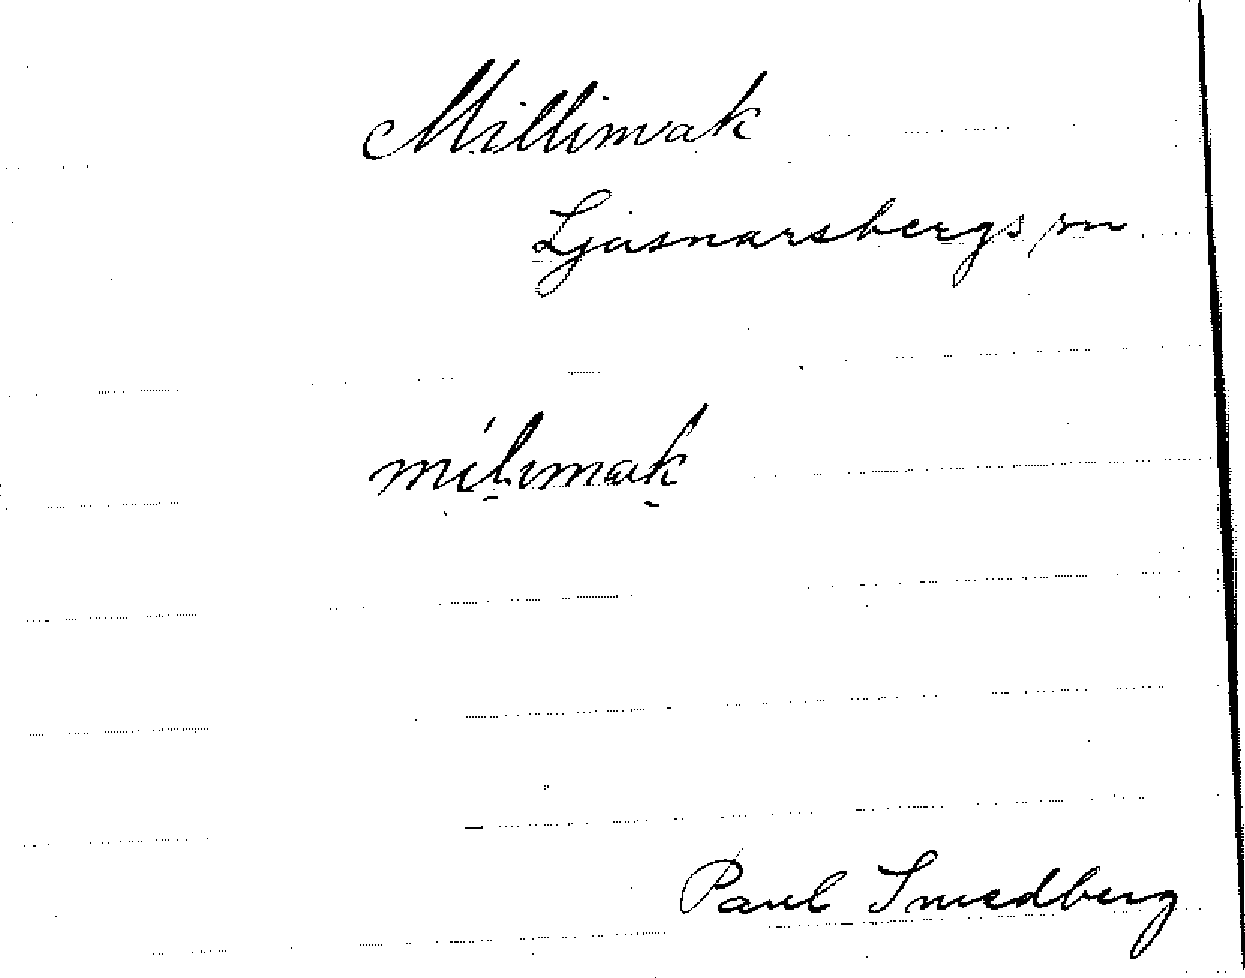 Millimak
Ljusnarsbergs sn
mílimak
Paul Smedberg